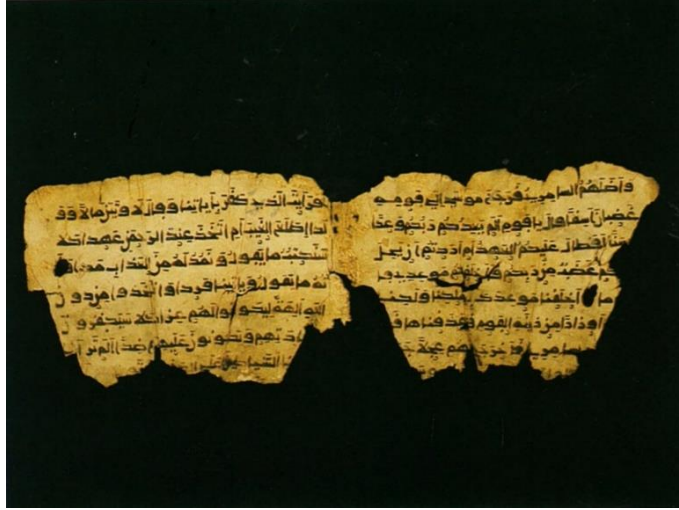 واضلهم السامرى فرجع موسى الى قومه
غضبان اسفا قال يا قوم الم يعدكم ربكم وعدا
حسنا افطال عليكم العهد ام اردتم ان يحل
كم غضب من ربكم فاخلفتم موعدى قا
ما اخلفنا موعدك بملكنا ولكنا
اوزارا من زينة القوم فقذفناها
السامرى فاخرج لهم عجلا
افرايت الذى كفر باياتنا وقال لاوتين مالا وو
لدا اطلع الغيب ام اتخذ عند الرحمن عهدا كلا
سنكتب ما يقول ونمد له من العذاب مدا و
نرثه ما يقول وياتينا فردا واتخذوا من دون
الله الهة ليكونوا لهم عزا كلا سيكفرون
بعبادتهم ويكونون عليهم ضدا الم تر ا
الشياطين على